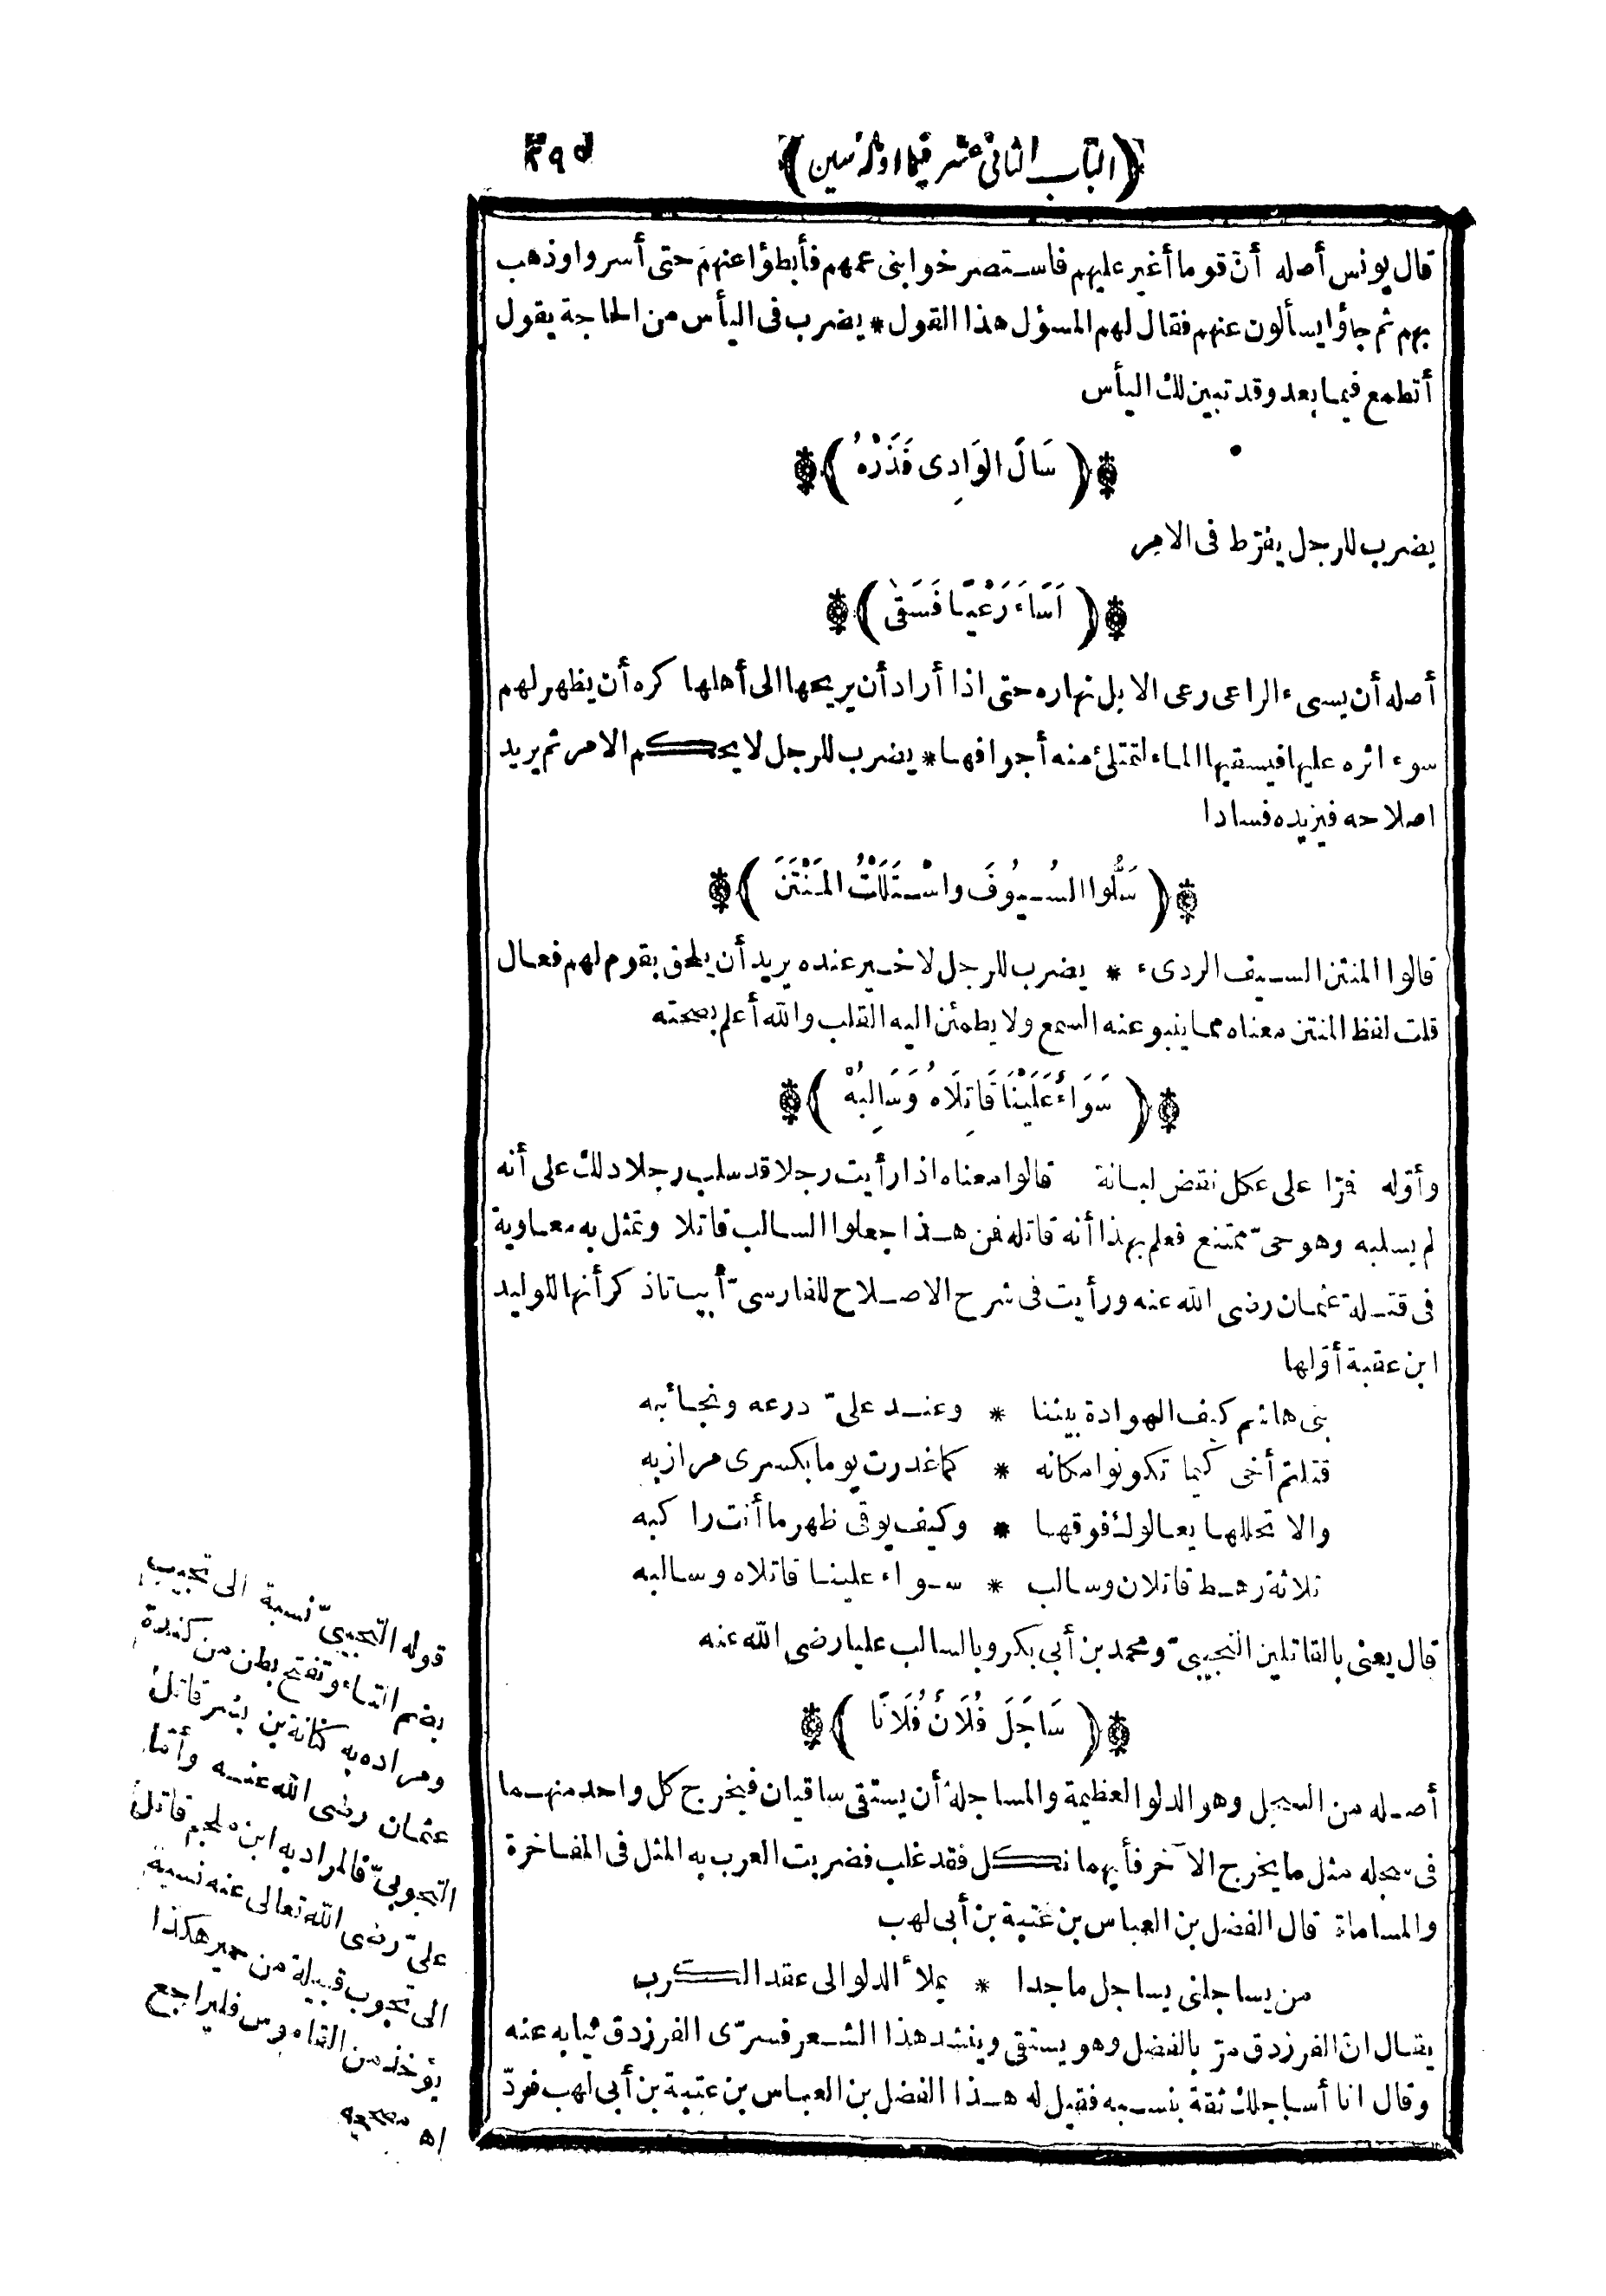 (الباب الثانى عشر فيما اوله سين) ٢٩٥
قال يونس أصله أنّ قوما أغير عليهم فاستصرخوا بنى عمهم فأبطؤا عنهم حتى أسروا وذهب
بهم ثم جاؤا يسألون عنهم فقال لهم المسؤل هذا القول * يضرب فى اليأس من الحاجة يقول
أتطمع فيما بعد وقد تبين لك اليأس
(سَالَ الوَادِى فَذَرْهُ)
يضرب للرجل يفرّط فى الامر
(اَسَاءَ رَعْيًا فَسَقَى)
أصله أن يسىء الراعى رعى الابل نهاره حتى اذا أراد أن يريحها الى أهلها كره أن يظهر لهم
سوء اثره عليها فيسقيها الماء لتمتلئ منه أجوافها * يضرب للرجل لا يحكم الامر ثم يريد
اصلاحه فيزيده فسادا
(سَلُّوا السُيُوفَ واسْتَلَلْتُ المَنْتَنَ)
قالوا المنتن السيف الردىء * يضرب للرجل لا خير عنده يريد أن يلحق بقوم لهم فعال
قلت لفظ المنتن معناه مما ينبو عنه السمع ولا يطمئن اليه القلب والله أعلم بصحته
(سَوَاءٌ عَلَيْنَا قَاتِلَاهُ وَسَالِبُهْ)
وأوّله فرّا على عكل نقض لبانة قالوا معناه اذا رأيت رجلا قد سلب رجلا دلك على أنه
لم يسلبه وهو حىّ ممتنع فعلم بهذا أنه قاتله فمن هذا جعلوا السالب قاتلا وتمثل به معاوية
فى قتلة عثمان رضى الله عنه ورأيت فى شرح الاصلاح للفارسىّ أبيانا ذكر أنها للوليد
ابن عقبة أوّلها
بنى هاشم كيف الهوادة بيننا * وعند علىّ درعه ونجائبه
قتلتم أخى كيما تكونوا مكانه * كما غدرت يوما بكسرى مرازبه
والا تحللها يعالوك فوقها * وكيف يوقى ظهر ما أنت راكبه
ثلاثة رهط قاتلان وسالب * سواء علينا قاتلاه وسالبه
قال يعنى بالقاتلين التجيبىّ ومحمد بن أبى بكر وبالسالب عليا رضى الله عنه
(سَاجَلَ فُلَانٌ فُلَانًا)
أصله من السجل وهو الدلو العظيمة والمساجلة أن يستقى ساقيان فيخرج كل واحد منهما
فى سجله مثل ما يخرج الآخر فأيهما نكل فقد غلب فضربت العرب به المثل فى المفاخرة
والمساماة قال الفضل بن العباس بن عتبة بن أبى لهب
من يساجلنى يساجل ماجدا * يملأ الدلو الى عقد الكرب
يقال انّ الفرزدق مرّ بالفضل وهو يستقى وينشد هذا الشعر فسرّى الفرزدق ثيابه عنه
وقال انا أساجلك ثقة بنسبه فقيل له هذا الفضل بن العباس بن عتبة بن أبى لهب فردّ
قوله التجيبىّ نسبة الى تجيب
بضم التاء وتفتح بطن من كندة
ومراده به كنانة بن بشر قاتل
عثمان رضى الله عنه وأمّا
التجوبىّ فالمراد به ابن ملجم قاتل
علىّ رضى الله تعالى عنه نسبة
الى تجوب قبيلة من حمير هكذا
يؤخذ من القاموس فليراجع
اه مصححه